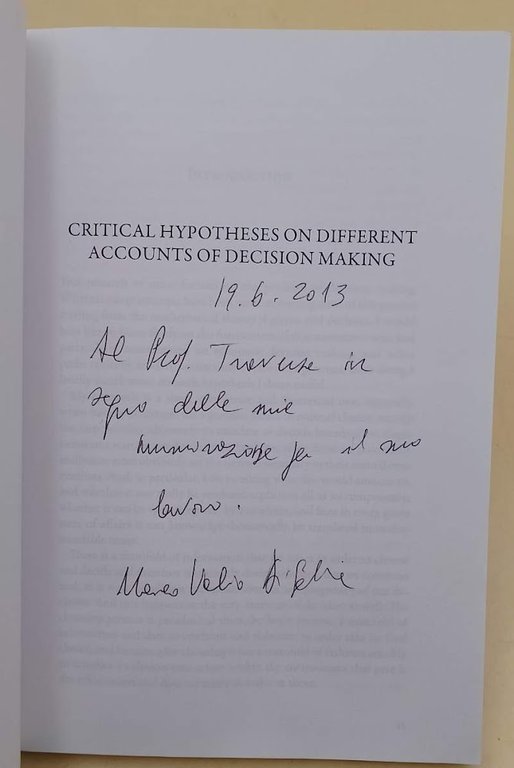 CRITICAL HYPOTHESES ON DIFFERENT
ACCOUNTS OF DECISION MAKING
19.6.2013
Al Prof. Traverse in
segno della mia
ammirazione per il suo
lavoro.
Marco Valio